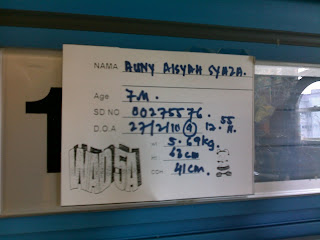 1
NAMA AUNY AISYAH SYAZA.
Age 7M.
SD NO 00275576.
D.O.A 27/2/10 @ 12.55
5.69kg.
63cm
41cm.
WAD 5A